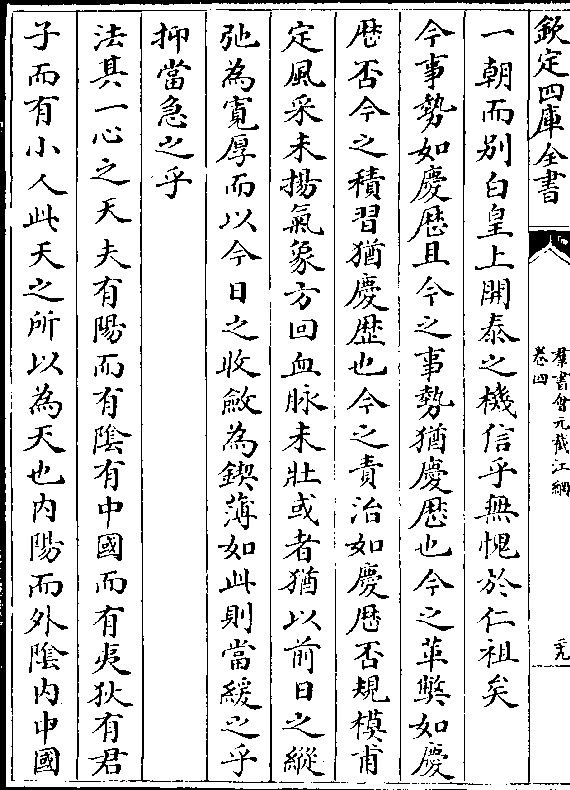 欽定四庫全書
羣書會元截江網
卷四
二九
一朝而别白皇上開泰之機信乎無愧於仁祖矣
今事勢如慶厯且今之事勢猶慶厯也今之革弊如慶
厯否今之積習猶慶歴也今之責治如慶厯否規模甫
定風采未揚氣象方回血脉未壯或者猶以前日之縱
弛為寛厚而以今日之收斂為鍥薄如此則當緩之乎
抑當急之乎
法其一心之天夫有陽而有陰有中國而有夷狄有君
子而有小人此天之所以為天也内陽而外陰内中國